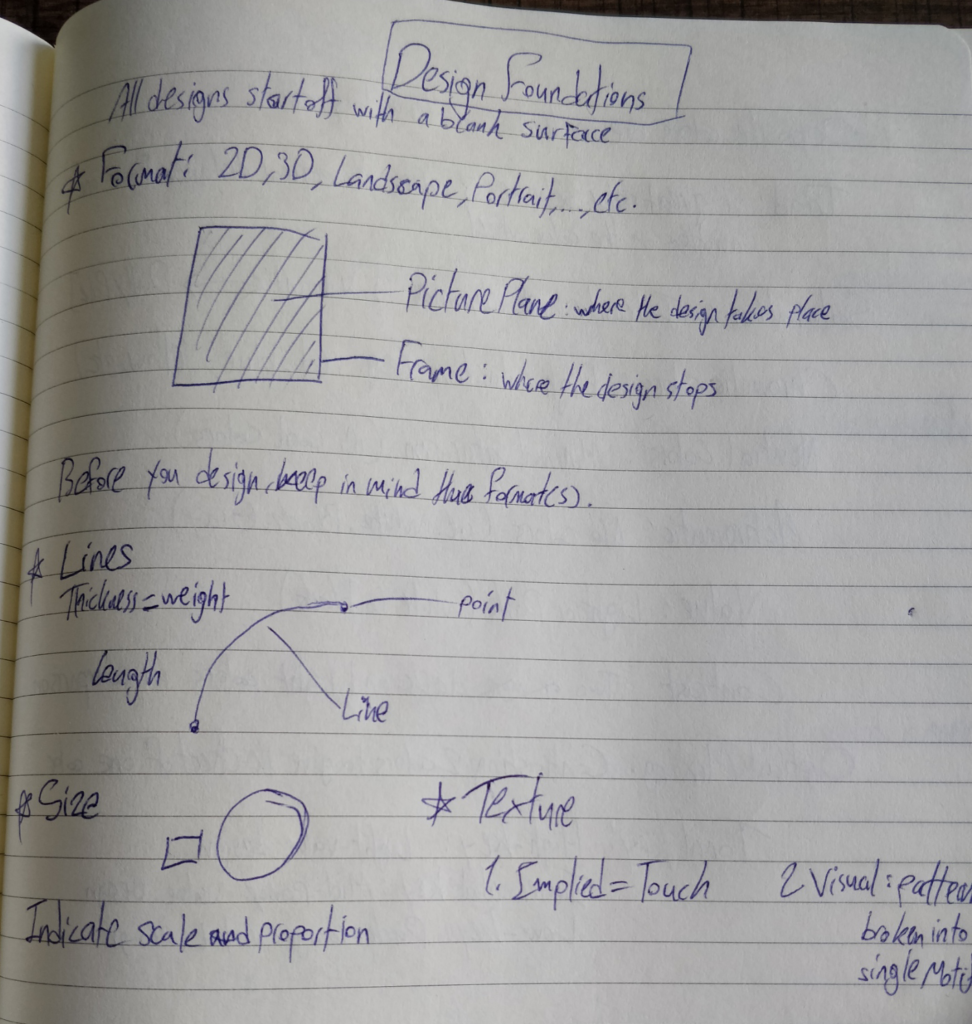 Design Foundations
All designs start off with a blank surface
Format: 2D, 3D, Landscape, Portrait, ..., etc.
Picture Plane: where the design takes place
Frame: where the design stops
Before you design, keep in mind format(s).
Lines
Thickness = weight
point
Length
Line
Size
Texture
1. Implied = Touch
2 Visual: patter
Indicate scale and proportion
broken into
single Moti